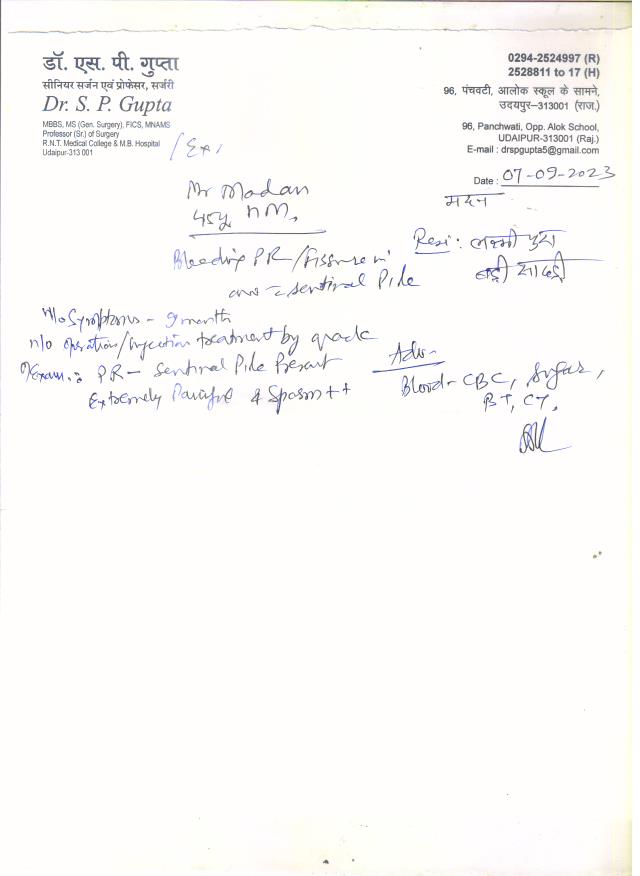 डॉ. एस. पी. गुप्ता
सीनियर सर्जन एवं प्रोफेसर, सर्जरी
Dr. S. P. Gupta
MBBS, MS (Gen. Surgery), FICS, MNAMS
Professor (Sr.) of Surgery
R.N.T. Medical College & M.B. Hospital
Udaipur-313 001
0294-2524997 (R)
2528811 to 17 (H)
96, पंचवटी, आलोक स्कूल के सामने,
उदयपुर-313001 (राज.)
96, Panchwati, Opp. Alok School,
UDAIPUR-313001 (Raj.)
E-mail : drspgupta5@gmail.com
Date : 07-09-2023
/Ex,
Mr Madan
45y
मदन
Bleeding PR/fissure in
ano = sentinal Pile
Resi : लक्ष्मी पुरा
बड़ी सादड़ी
H/o Symptoms - 9 month
H/o operation/injection treatment by quack
O/Exam. : PR - Sentinal Pile Present
Extremely Painful & Spasm ++
Adv -
Blood - CBC, Sugar,
BT, CT,